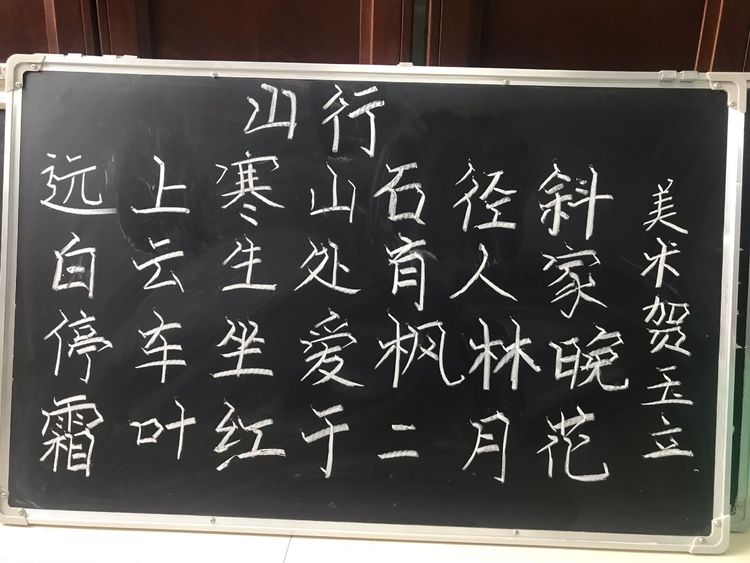 山行
远上寒山石径斜
白云生处有人家
停车坐爱枫林晚
霜叶红于二月花
美术贺玉立